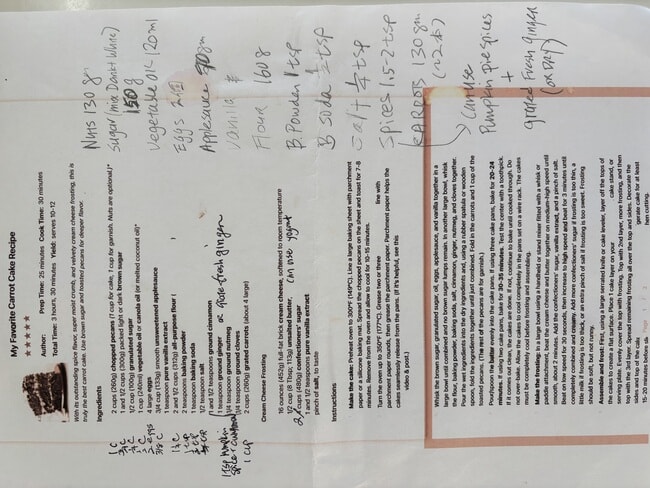 My Favorite Carrot Cake Recipe
★★★★★
Author: Prep Time: 25 minutes Cook Time: 30 minutes
Total Time: 3 hours, 30 minutes Yield: serves 10-12
With its outstanding spice flavor, super moist crumb, and velvety cream cheese frosting, this is
truly the best carrot cake. Use brown sugar and toasted pecans for deeper flavor.
Ingredients
1 C 2 cups (260g) chopped pecans (1 cup for cake, 1 cup for garnish. Nuts are optional.)*
1 and 1/2 cups (300g) packed light or dark brown sugar
1/2 cup (100g) granulated sugar
1 cup (240ml) vegetable oil or canola oil (or melted coconut oil)*
eggs 4 large eggs
3/8 C 3/4 cup (133g) smooth unsweetened applesauce
1 teaspoon pure vanilla extract
2 and 1/2 cups (312g) all-purpose flour (
2 teaspoons baking powder
1 teaspoon baking soda
1/2 teaspoon salt
1 and 1/2 teaspoons ground cinnamon
1 teaspoon ground ginger or grate fresh ginger
1/4 teaspoon ground nutmeg
1 tsp pumpkin
spice + cinnamon
1/4 teaspoon ground cloves
1 cup 2 cups (260g) grated carrots (about 4 large)
Cream Cheese Frosting
16 ounces (452g) full-fat brick cream cheese, softened to room temperature
1/2 cup (8 Tbsp; 113g) unsalted butter, can use yogurt
cups (480g) confectioners' sugar
1 and 1/2 teaspoons pure vanilla extract
pinch of salt, to taste
Instructions
Make the cake: Preheat oven to 300°F (149°C). Line a large baking sheet with parchment
paper or a silicone baking mat. Spread the chopped pecans on the sheet and toast for 7-8
minutes. Remove from the oven and allow to cool for 10-15 minutes.
Turn the oven up to 350°F (177°C). Grease two or three line with
parchment paper rounds, then grease the parchment paper. Parchment paper helps the
cakes seamlessly release from the pans. (If it's helpful, see this
video & post.)
Whisk the brown sugar, granulated sugar, oil, eggs, applesauce, and vanilla together in a
large bowl until combined and no brown sugar lumps remain. In another large bowl, whisk
the flour, baking powder, baking soda, salt, cinnamon, ginger, nutmeg, and cloves together.
Pour the wet ingredients into the dry ingredients and, using a rubber spatula or wooden
spoon, fold the ingredients together until just combined. Fold in the carrots and 1 cup of the
toasted pecans. (The rest of the pecans are for garnish.)
Pour/spoon the batter evenly into the cake pans. If using three cake pans, bake for 20-24
minutes. If using two cake pans, bake for 30-35 minutes. Test the center with a toothpick.
If it comes out clean, the cakes are done. If not, continue to bake until cooked through. Do
not over-bake. Allow the cakes to cool completely in the pans set on a wire rack. The cakes
must be completely cool before frosting and assembling.
Make the frosting: In a large bowl using a handheld or stand mixer fitted with a whisk or
paddle attachment, beat the cream cheese and butter together on medium-high speed until
smooth, about 2 minutes. Add the confectioners' sugar, vanilla extract, and a pinch of salt.
Beat on low speed for 30 seconds, then increase to high speed and beat for 3 minutes until
completely combined and creamy. Add more confectioners' sugar if frosting is too thin, a
little milk if frosting is too thick, or an extra pinch of salt if frosting is too sweet. Frosting
should be soft, but not runny.
Assemble and frost: First, using a large serrated knife or cake leveler, layer off the tops of
the cakes to create a flat surface. Place 1 cake layer on your cake stand, or
serving plate. Evenly cover the top with frosting. Top with 2nd layer, more frosting, and then
top with the 3rd layer. Spread remaining frosting all over the top and sides. Decorate the
sides and top of the cake gerate cake for at least
15-20 minutes before sli Page 1 / 2 hen cutting.
Nuts 130 g
Sugar (mix Dark+White)
150g
Vegetable Oil 120ml
Eggs 2
Applesauce 70gm
Vanilla
Flour 160g
B.Powder 1 tsp
B soda 1/2 tsp
Salt 1/4 tsp
Spices 1.5-2 tsp
CARROTS 130 gm
(~2本)
Can use
Pumpkin pie spices
+
grated Fresh ginger
(or DRY)